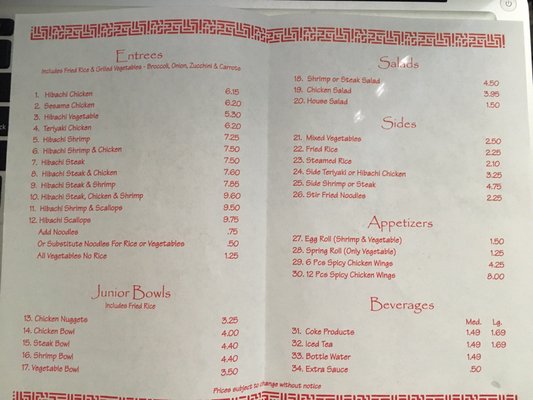 Entrees
Includes Fried Rice & Grilled Vegetables - Broccoli, Onion, Zucchini & Carrots
1. Hibachi Chicken 6.15
2. Sesame Chicken 6.20
3. Hibachi Vegetable 5.30
4. Teriyaki Chicken 6.20
5. Hibachi Shrimp 7.25
6. Hibachi Shrimp & Chicken 7.50
7. Hibachi Steak 7.50
8. Hibachi Steak & Chicken 7.60
9. Hibachi Steak & Shrimp 7.85
10. Hibachi Steak, Chicken & Shrimp 9.60
11. Hibachi Shrimp & Scallops 9.50
12. Hibachi Scallops 9.75
Add Noodles .75
Or Substitute Noodles For Rice or Vegetables .50
All Vegetables No Rice 1.25
Junior Bowls
Includes Fried Rice
13. Chicken Nuggets 3.25
14. Chicken Bowl 4.00
15. Steak Bowl 4.40
16. Shrimp Bowl 4.40
17. Vegetable Bowl 3.50
Salads
18. Shrimp or Steak Salad 4.50
19. Chicken Salad 3.95
20. House Salad 1.50
Sides
21. Mixed Vegetables 2.50
22. Fried Rice 2.25
23. Steamed Rice 2.10
24. Side Teriyaki or Hibachi Chicken 3.25
25. Side Shrimp or Steak 4.75
26. Stir Fried Noodles 2.25
Appetizers
27. Egg Roll (Shrimp & Vegetable) 1.50
28. Spring Roll (Only Vegetable) 1.25
29. 6 Pcs Spicy Chicken Wings 4.25
30. 12 Pcs Spicy Chicken Wings 8.00
Beverages
Med. Lg.
31. Coke Products 1.49 1.69
32. Iced Tea 1.49 1.69
33. Bottle Water 1.49
34. Extra Sauce .50
Prices subject to change without notice